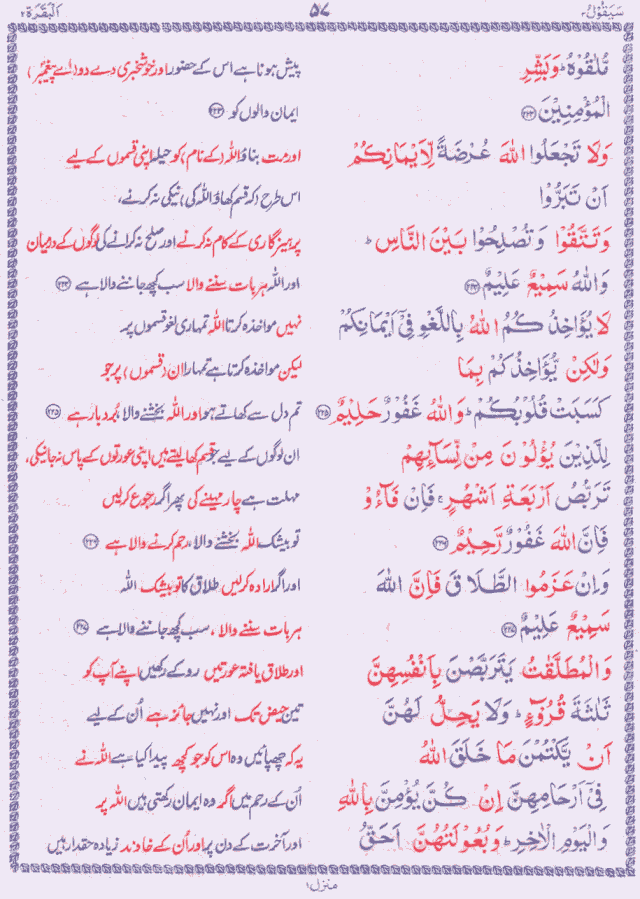 سَيَقُوْلُ ٢
۵۷
اَلْبَقَرَة ٢
مُّلٰقُوْهُ ؕ وَبَشِّرِ
پیش ہونا ہے اس کے حضور اور خوشخبری دے دو (اے پیغمبرؐ)
الْمُؤْمِنِيْنَ ﴿۲۲۳﴾
ایمان والوں کو ﴿۲۲۳﴾
وَلَا تَجْعَلُوا اللّٰهَ عُرْضَةً لِّاَيْمَانِكُمْ
اور مت بناؤ اللہ (کے نام) کو حیلہ اپنی قسموں کے لیے
اَنْ تَبَرُّوْا
اس طرح (کہ قسم کھاؤ اللہ کی) نیکی نہ کرنے،
وَتَتَّقُوْا وَتُصْلِحُوْا بَيْنَ النَّاسِ ؕ
پرہیزگاری کے کام نہ کرنے اور صلح نہ کرانے کی لوگوں کے درمیان
وَاللّٰهُ سَمِيْعٌ عَلِيْمٌ ﴿۲۲۴﴾
اور اللہ ہر بات سننے والا سب کچھ جاننے والا ہے ﴿۲۲۴﴾
لَا يُؤَاخِذُكُمُ اللّٰهُ بِاللَّغْوِ فِيْۤ اَيْمَانِكُمْ
نہیں مواخذہ کرتا اللہ تمہاری لغو قسموں پر
وَلٰكِنْ يُّؤَاخِذُكُمْ بِمَا
لیکن مواخذہ کرتا ہے تمہارا ان (قسموں) پر جو
كَسَبَتْ قُلُوْبُكُمْ ؕ وَاللّٰهُ غَفُوْرٌ حَلِيْمٌ ﴿۲۲۵﴾
تم دل سے کھاتے ہو اور اللہ بخشنے والا، بُردبار ہے ﴿۲۲۵﴾
لِلَّذِيْنَ يُؤْلُوْنَ مِنْ نِّسَآىِٕهِمْ
ان لوگوں کے لیے جو قسم کھا لیتے ہیں اپنی عورتوں کے پاس نہ جانیکی،
تَرَبُّصُ اَرْبَعَةِ اَشْهُرٍ ۚ فَاِنْ فَآءُوْ
مہلت ہے چار مہینے کی پھر اگر رجوع کر لیں
فَاِنَّ اللّٰهَ غَفُوْرٌ رَّحِيْمٌ ﴿۲۲۶﴾
تو بیشک اللہ بخشنے والا، رحم کرنے والا ہے ﴿۲۲۶﴾
وَاِنْ عَزَمُوا الطَّلَاقَ فَاِنَّ اللّٰهَ
اور اگر ارادہ کر لیں طلاق کا تو بیشک اللہ
سَمِيْعٌ عَلِيْمٌ ﴿۲۲۷﴾
ہر بات سننے والا، سب کچھ جاننے والا ہے ﴿۲۲۷﴾
وَالْمُطَلَّقٰتُ يَتَرَبَّصْنَ بِاَنْفُسِهِنَّ
اور طلاق یافتہ عورتیں روکے رکھیں اپنے آپ کو
ثَلٰثَةَ قُرُوْٓءٍ ؕ وَلَا يَحِلُّ لَهُنَّ
تین حیض تک اور نہیں جائز ہے اُن کے لیے
اَنْ يَّكْتُمْنَ مَا خَلَقَ اللّٰهُ
یہ کہ چھپائیں وہ اس کو جو کچھ پیدا کیا ہے اللہ نے
فِيْۤ اَرْحَامِهِنَّ اِنْ كُنَّ يُؤْمِنَّ بِاللّٰهِ
اُن کے رحم میں اگر وہ ایمان رکھتی ہیں اللہ پر
وَالْيَوْمِ الْاٰخِرِ ؕ وَبُعُوْلَتُهُنَّ اَحَقُّ
اور آخرت کے دن پر اور اُن کے خاوند زیادہ حقدار ہیں
منزل ١